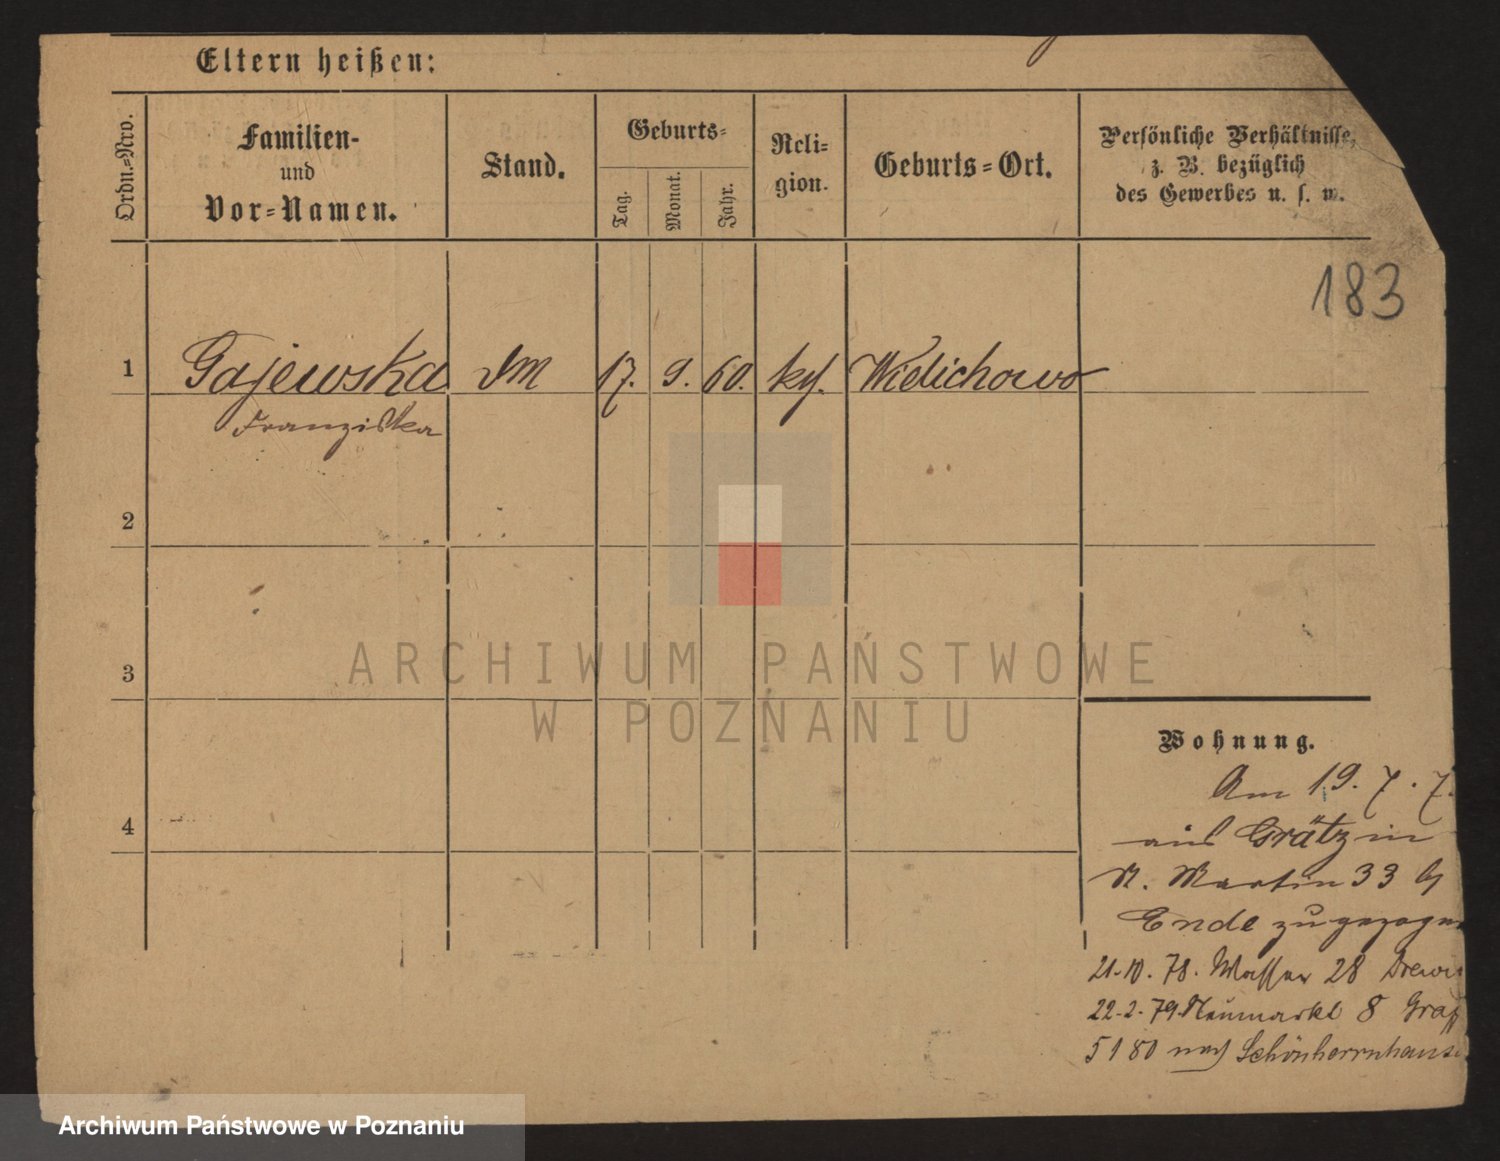 Eltern heißen:
Ordn.-Nro.
Familien-
und
Vor-Namen.
Stand.
Geburts-
Tag.
Monat.
Jahr.
Reli-
gion.
Geburts-Ort.
Persönliche Verhältnisse,
z. B. bezüglich
des Gewerbes u. s. w.
183
1 Gajewska DM 17. 9. 60. kth. Wielichowo
Franziska
2
3
4
ARCHIWUM PAŃSTWOWE
W POZNANIU
Wohnung.
Am 19. 7. 7
aus Grätz in
St. Martin 33
Ende zugezogen
21.10.78. Wasser 28
22.2.79. Neumarkt 8
5 1 80 nach Schönherrnhause
Archiwum Państwowe w Poznaniu